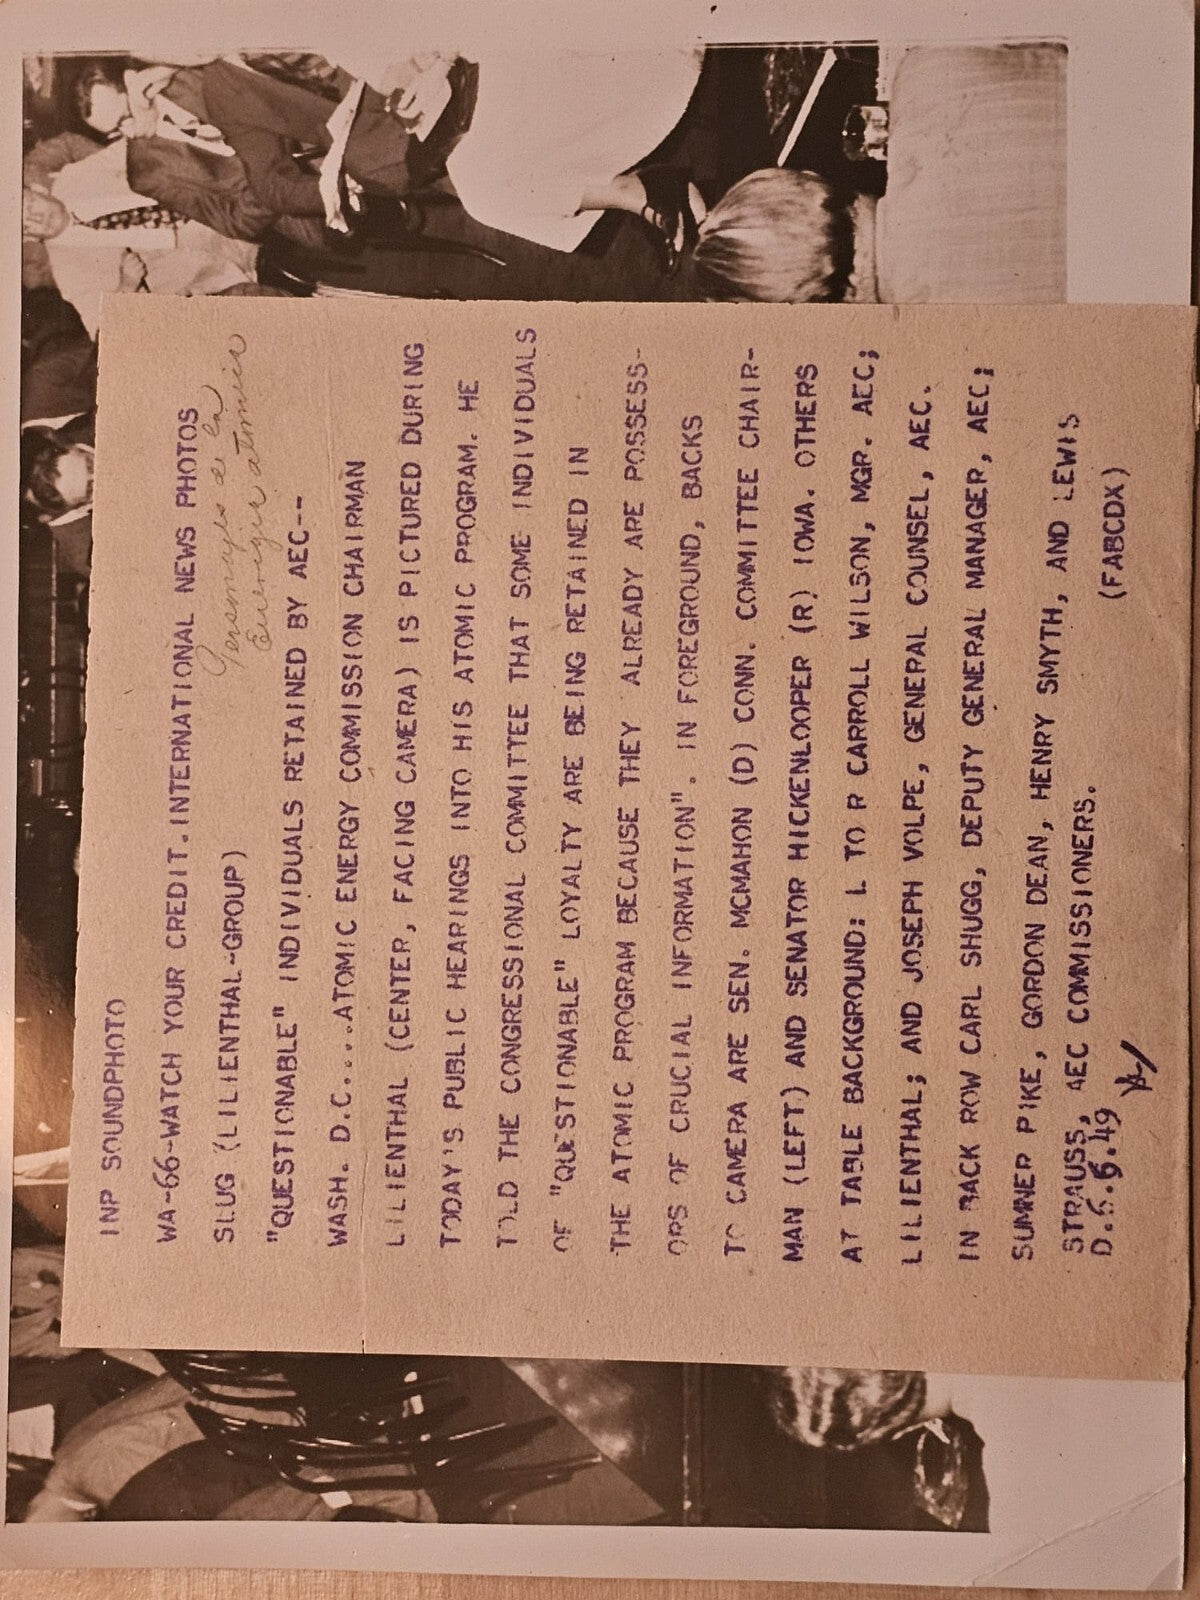 INP SOUNDPHOTO
WA-66-WATCH YOUR CREDIT.INTERNATIONAL NEWS PHOTOS
SLUG (LILIENTHAL-GROUP)
Personajes de la
Energia atomica
"QUESTIONABLE" INDIVIDUALS RETAINED BY AEC--
WASH. D.C....ATOMIC ENERGY COMMISSION CHAIRMAN
LILIENTHAL (CENTER, FACING CAMERA) IS PICTURED DURING
TODAY'S PUBLIC HEARINGS INTO HIS ATOMIC PROGRAM. HE
TOLD THE CONGRESSIONAL COMMITTEE THAT SOME INDIVIDUALS
OF "QUESTIONABLE" LOYALTY ARE BEING RETAINED IN
THE ATOMIC PROGRAM BECAUSE THEY ALREADY ARE POSSESS-
ORS OF CRUCIAL INFORMATION". IN FOREGROUND, BACKS
TO CAMERA ARE SEN. MCMAHON (D) CONN. COMMITTEE CHAIR-
MAN (LEFT) AND SENATOR HICKENLOOPER (R) IOWA. OTHERS
AT TABLE BACKGROUND: L TO R CARROLL WILSON, MGR. AEC;
LILIENTHAL; AND JOSEPH VOLPE, GENERAL COUNSEL, AEC.
IN BACK ROW CARL SHUGG, DEPUTY GENERAL MANAGER, AEC;
SUMNER PIKE, GORDON DEAN, HENRY SMYTH, AND LEWIS
STRAUSS, AEC COMMISSIONERS. (FABCDX)
D.6.6.49